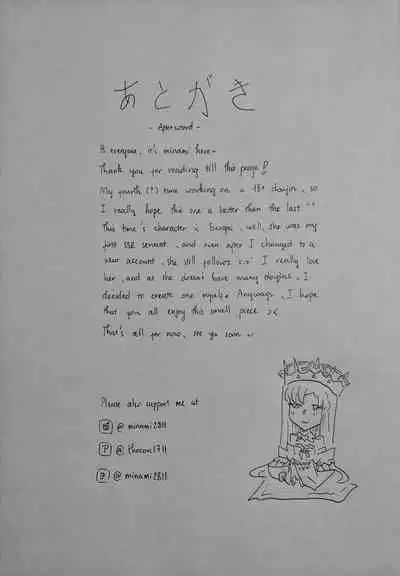 あとがき
- Afterword -
Hi everyone, it's minami here~
Thank you for reading till this page!!
My fourth (?) time working on a 18+ doujin, so
I really hope this one is better than the last ^^
This time's character is Europa, well, she was my
first SSR servant, and even after I changed to a
new account, she still follows I really love
her, and as she doesn't have many doujins, I
decided to create one myself. Anyways, I hope
that you all enjoy this small piece ><
That's all for now, see you soon ~
Please also support me at
@minami2811
P @
@minami2811